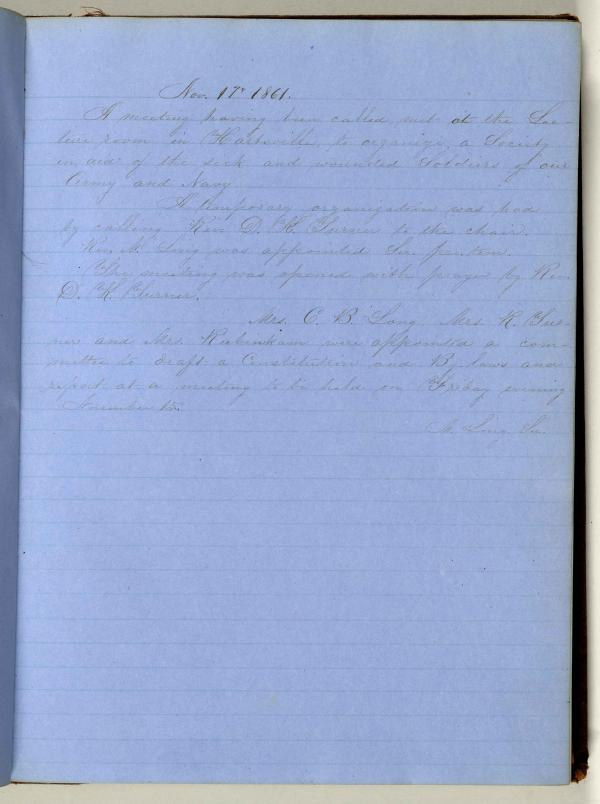 Nov. 17th 1861.
A meeting having been called met at the Lec-
ture room in Hartsville, to organize, a Society
in aid of the sick and wounded Soldiers of our
Army and Navy
A temporary organization was had
by calling Rev. D. K. Turner to the chair.
Rev. M. Long was appointed Sec. protem.
The meeting was opened with prayer by Rev.
D. K. Turner.
Mrs. C. B. Long Mrs. R. Tur-
ner and Mrs. were appointed a com-
mittee to draft a Constitution and By laws and
report at a meeting to be held on Friday evening
November
M. Long Sec.